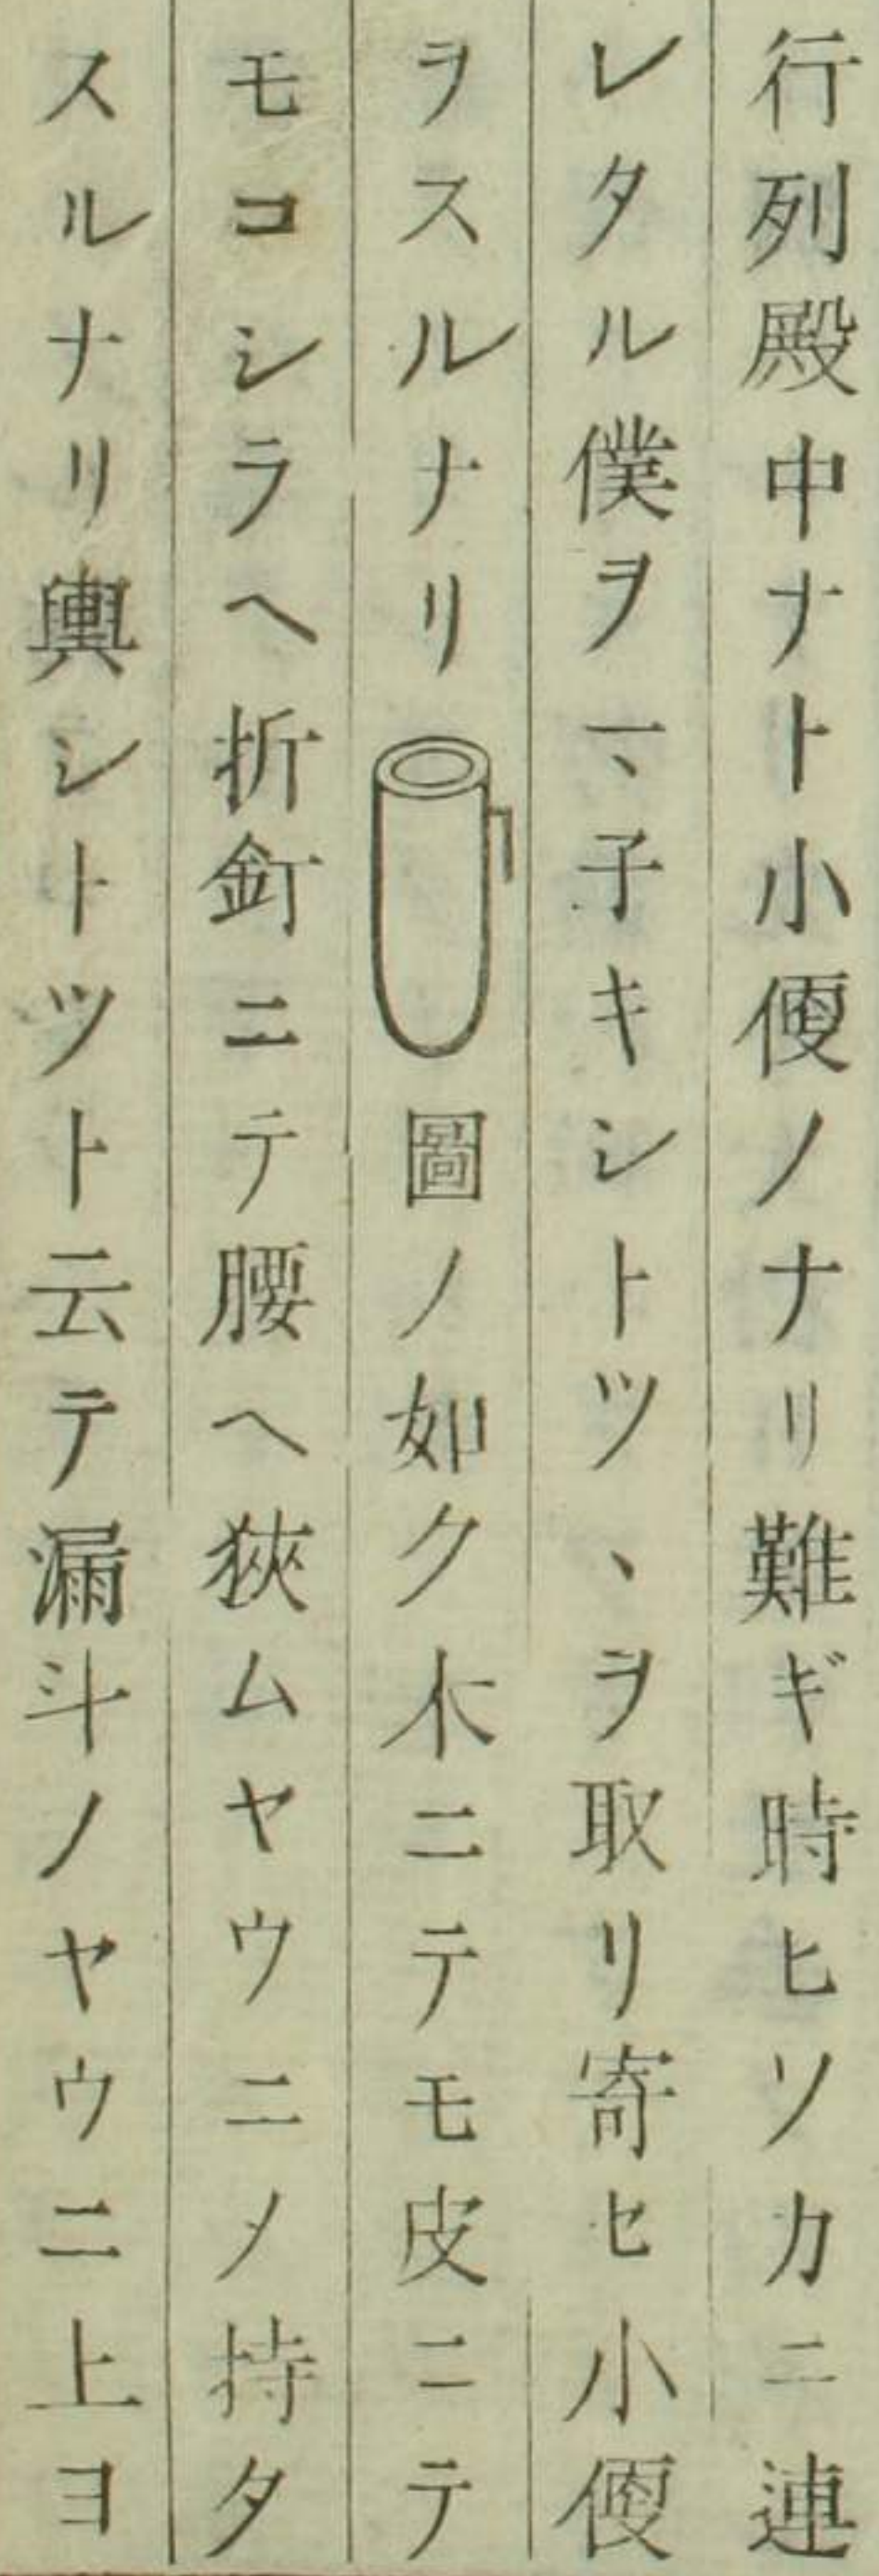 行列殿中ナト小便ノナリ難ギ時ヒソカニ連
レタル僕ヲマ子キシトツヽヲ取リ寄セ小便
ヲスルナリ圖ノ如ク木ニテモ皮ニテ
モコシラヘ折釘ニテ腰ヘ狹ムヤウニメ持タ
スルナリ輿シトツト云テ漏斗ノヤウニ上ヨ